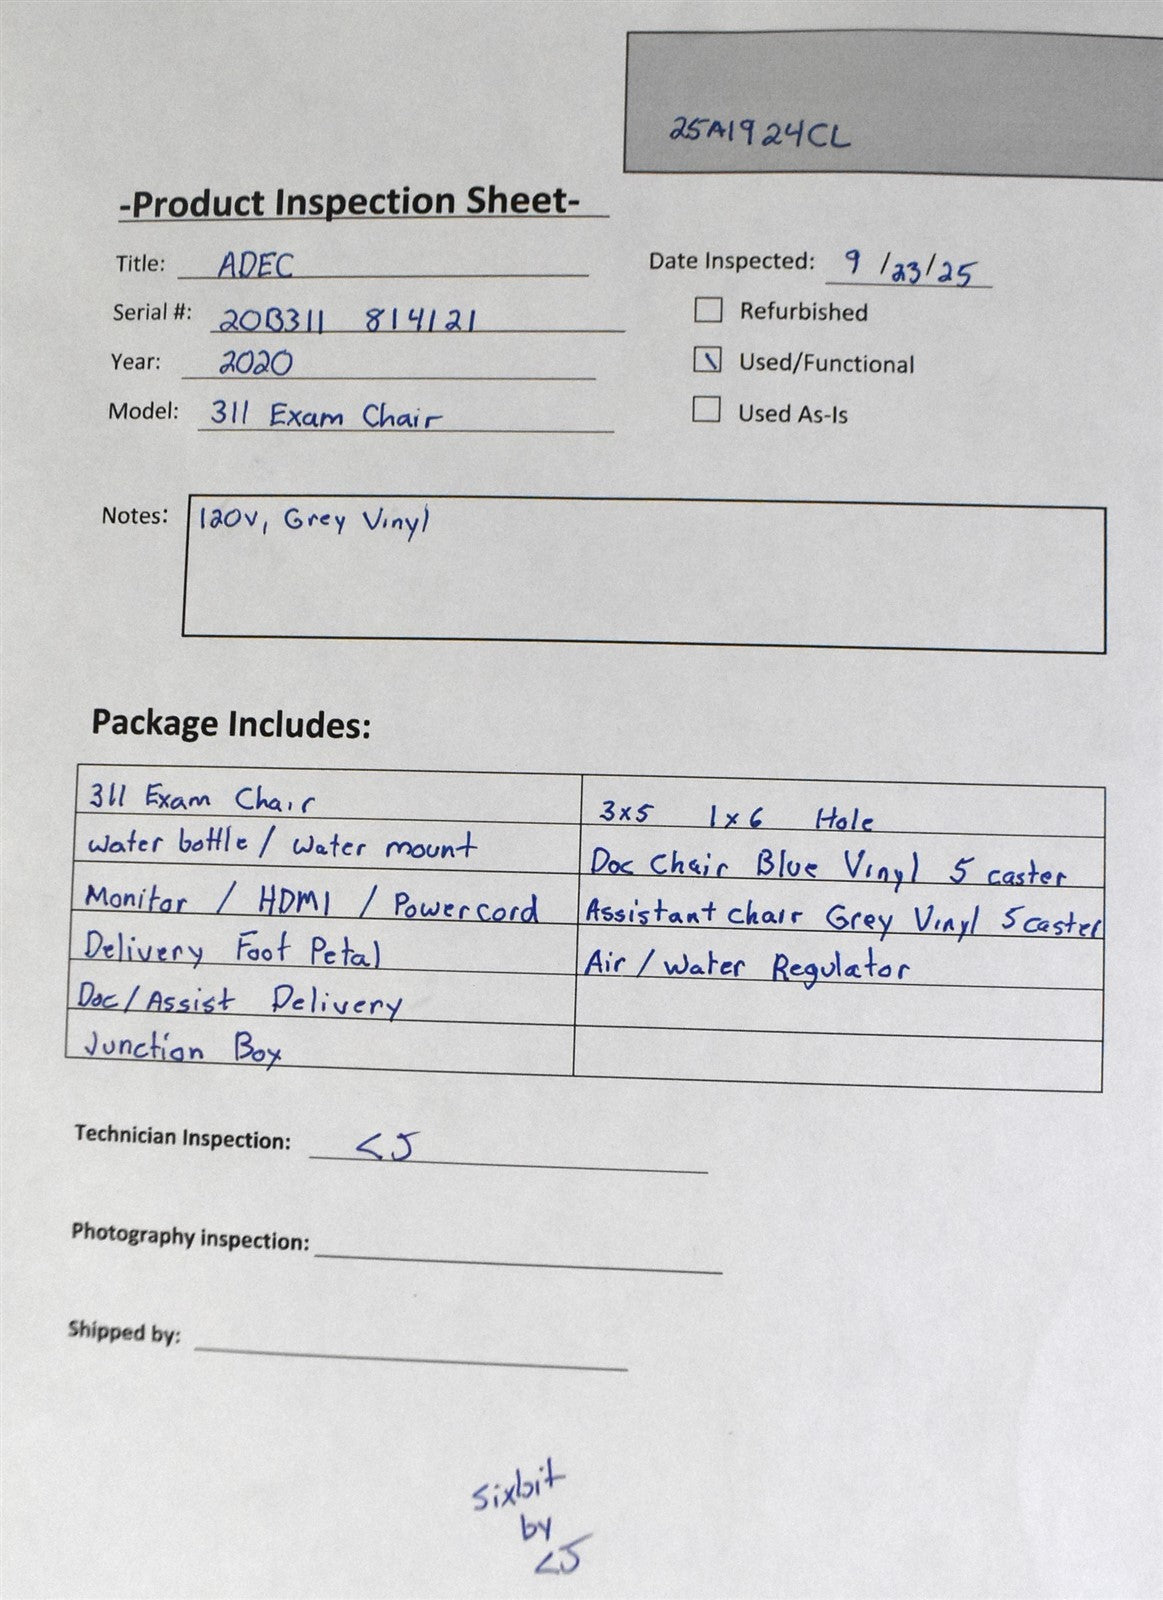 25A1924CL
-Product Inspection Sheet-
Title: ADEC
Date Inspected: 9/23/25
Serial #: 20B311 814121
Refurbished
Year: 2020
Used/Functional
Model: 311 Exam Chair
Used As-Is
Notes: 120V, Grey Vinyl
Package Includes:
311 Exam Chair
3x5 1x6 Hole
water bottle / water mount
Doc Chair Blue Vinyl 5 caster
Monitor / HDMI / Power cord
Assistant chair Grey Vinyl 5 caster
Delivery Foot Petal
Air / Water Regulator
Doc/Assist Delivery
Junction Box
Technician Inspection: CJ
Photography inspection:
Shipped by:
sixbit
by
CJ